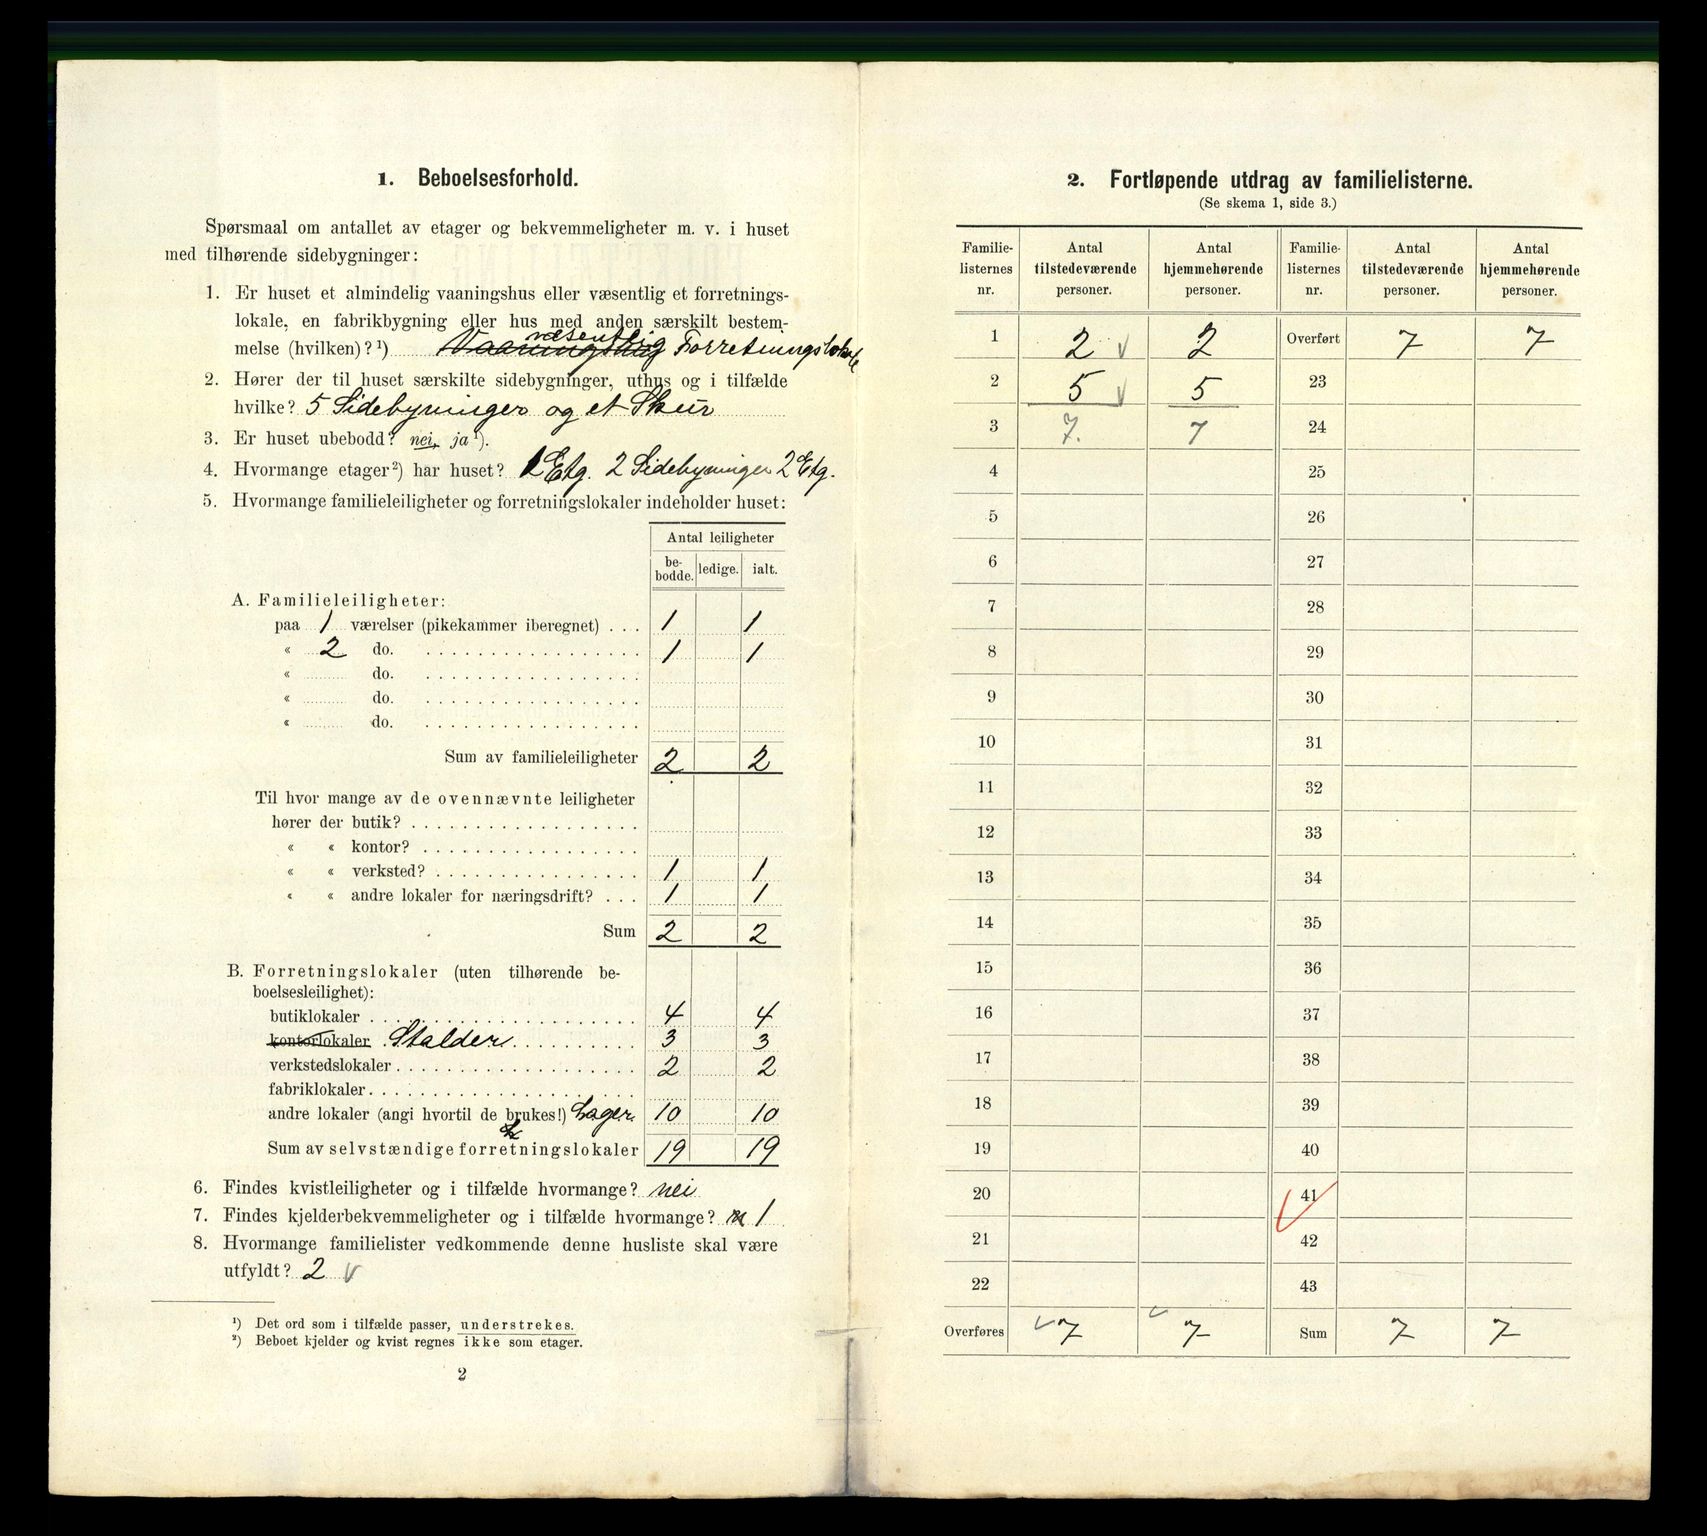 1. Beboelsesforhold.
Spørsmaal om antallet av etager og bekvemmeligheter m. v. i huset
med tilhørende sidebygninger:
1. Er huset et almindelig vaaningshus eller væsentlig et forretnings-
lokale, en fabrikbygning eller hus med anden særskilt bestem-
væsentlig
melse (hvilken)? ¹) Vaaningshus Forretningslokale
2. Hører der til huset særskilte sidebygninger, uthus og i tilfælde
hvilke? 5 Sidebyninger og et Skur
3. Er huset ubebodd? nei, ja ¹).
4. Hvormange etager ²) har huset? 1 Etg. 2 Sidebyninger 2 Etg.
5. Hvormange familieleiligheter og forretningslokaler indeholder huset:
Antal leiligheter
be-
bodde. ledige. ialt.
A. Familieleiligheter:
paa 1 værelser (pikekammer iberegnet) . . . 1 1
« 2 do. . . . . . . . . . . . . . . . . . 1 1
« do. . . . . . . . . . . . . . . . . .
« do. . . . . . . . . . . . . . . . . .
« do. . . . . . . . . . . . . . . . . .
Sum av familieleiligheter 2 2
Til hvor mange av de ovennævnte leiligheter
hører der butik? . . . . . . . . . . . . . . . . . .
« « kontor? . . . . . . . . . . . . . . . . .
« « verksted? . . . . . . . . . . . . . . . . 1 1
« « andre lokaler for næringsdrift? . . . 1 1
Sum 2 2
B. Forretningslokaler (uten tilhørende be-
boelsesleilighet):
butiklokaler . . . . . . . . . . . . . . . . . . . . . 4 4
kontorlokaler . Stalder . . . . . . . . . . 3 3
verkstedslokaler . . . . . . . . . . . . . . . . . . . 2 2
fabriklokaler . . . . . . . . . . . . . . . . . . . . .
andre lokaler (angi hvortil de brukes!) Lager. 10 10
Sum av selvstændige forretningslokaler 19 19
6. Findes kvistleiligheter og i tilfælde hvormange? nei
7. Findes kjelderbekvemmeligheter og i tilfælde hvormange? n 1
8. Hvormange familielister vedkommende denne husliste skal være
utfyldt? 2 v
¹) Det ord som i tilfælde passer, understrekes.
²) Beboet kjelder og kvist regnes ikke som etager.
2
2. Fortløpende utdrag av familielisterne.
(Se skema 1, side 3.)
Familie-
listernes
nr. Antal
tilstedeværende
personer. Antal
hjemmehørende
personer. Familie-
listernes
nr. Antal
tilstedeværende
personer. Antal
hjemmehørende
personer.
1 2 v 2 Overført 7 7
2 5 v 5 23
3 7. 7 24
4 25
5 26
6 27
7 28
8 29
9 30
10 31
11 32
12 33
13 34
14 35
15 36
16 37
17 38
18 39
19 40
20 41
21 42
22 43
Overføres v 7 v 7 Sum 7 7